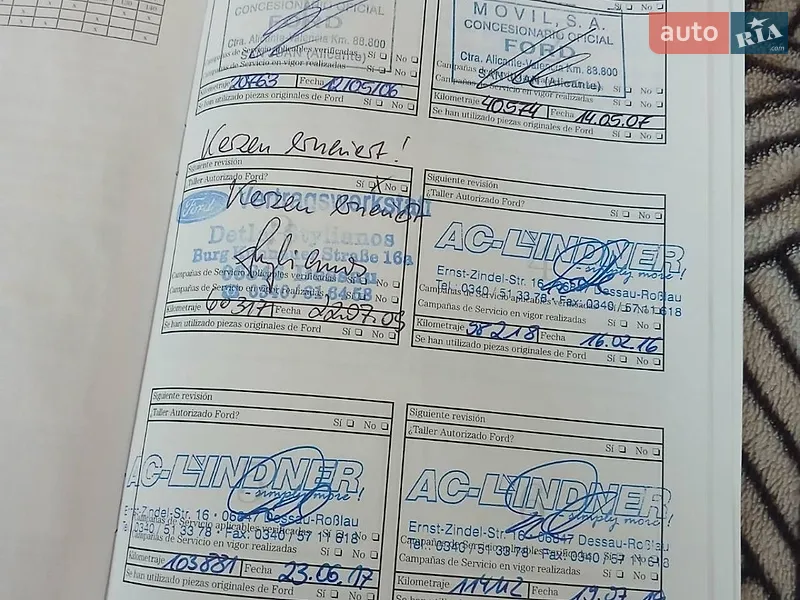 130
140
x
x
x
x
x
x
x
CONCESIONARIO OFICIAL
FORD
Ctra. Alicante-Valencia Km. 88.800
Campañas de Servicio aplicables verificadas Sí No
SAN JUAN (Alicante)
Campañas de Servicio en vigor realizadas Sí No
Kilometraje 20763 Fecha 12/05/06
Se han utilizado piezas originales de Ford Sí No
MOVIL, S.A.
CONCESIONARIO OFICIAL
FORD
Ctra. Alicante-Valencia Km. 88.800
SAN JUAN (Alicante)
Campañas de Servicio en vigor realizadas Sí No
Kilometraje 40574 Fecha 14.05.07
Se han utilizado piezas originales de Ford Sí No
auto RIA
.com
Kerzen erneuert!
Siguiente revisión
¿Taller Autorizado Ford? Sí No
Ford Vertragswerkstatt
Kerzen erneuert
Detlef Stylianos
Straße 16a
Campañas de Servicio aplicables verificadas Sí No
Campañas de Servicio en vigor Sí No
Kilometraje Fecha 22.07.09
Se han utilizado piezas originales de Ford Sí No
Siguiente revisión
¿Taller Autorizado Ford?
Sí No
AC-LINDNER
simply more!
Ernst-Zindel-Str. 16 • 06847 Dessau-Roßlau
Tel.: 0340 / 51 33 78 • Fax: 0340 / 57 11 618
Campañas de Servicio aplicables verificadas Sí No
Campañas de Servicio en vigor realizadas Sí No
Kilometraje 98218 Fecha 16.02.16
Se han utilizado piezas originales de Ford Sí No
Siguiente revisión
¿Taller Autorizado Ford?
Sí No
AC-LINDNER
simply more!
Ernst-Zindel-Str. 16 • 06847 Dessau-Roßlau
Campañas de Servicio aplicables verificadas Sí No
0340 / 51 33 78 • Fax: 0340 / 57 11 618
Campañas de Servicio en vigor realizadas Sí No
Kilometraje 103881 Fecha 23.06.17
Se han utilizado piezas originales de Ford Sí No
Siguiente revisión
¿Taller Autorizado Ford?
Sí No
AC-LINDNER
simply more!
Ernst-Zindel-Str. 16 • 06847 Dessau-Roßlau
Tel.: 0340 / 51 33 78 • Fax: 0340 / 57 11 618
Campañas de Servicio en vigor realizadas Sí No
Kilometraje Fecha
Se han utilizado piezas originales de Ford